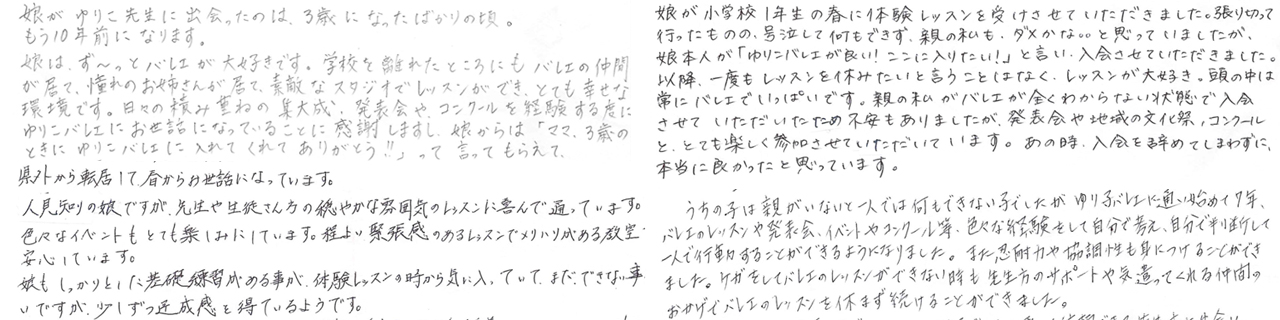 娘がゆりこ先生に出会ったのは、3歳になったばかりの頃。
もう10年前になります。
娘は、ず〜っとバレエが大好きです。学校を離れたところにもバレエの仲間
が居て、憧れのお姉さんが居て、素敵なスタジオでレッスンができ、とても幸せな
環境です。日々の積み重ねの集大成、発表会や、コンクールを経験する度に
ゆりこバレエにお世話になっていることに感謝しますし、娘からは「ママ、3歳の
ときにゆりこバレエに入れてくれてありがとう!!」って言ってもらえて、
県外から転居して、春からお世話になっています。
人見知りの娘ですが、先生や生徒さん方の穏やかな雰囲気のレッスンに喜んで通っています。
色々なイベントもとても楽しみにしています。程よい緊張感のあるレッスンでメリハリがある教室で
安心しています。
娘も しっかりとした基礎練習がある事が、体験レッスンの時から気に入っていて、まだできない事
いですが、少しずつ達成感を得ているようです。
娘が小学校1年生の春に体験レッスンを受けさせていただきました。張り切って
行ったものの、号泣して何もできず、親の私も、ダメかな…と思っていましたが、
娘本人が「ゆりこバレエが良い!ここに入りたい!」と言い、入会させていただきました。
以降、一度もレッスンを休みたいと言うことはなく、レッスンが大好き。頭の中は
常にバレエでいっぱいです。親の私がバレエが全くわからない状態で入会
させていただいたため不安もありましたが、発表会や地域の文化祭、コンクール
と、とても楽しく参加させていただいています。あの時、入会を辞めてしまわずに、
本当に良かったと思っています。
うちの子は親がいないと一人では何もできない子でしたが ゆりこバレエに通い始めて7年、
バレエのレッスンや発表会、イベントやコンクール等、色々な経験をして自分で考え、自分で判断して
一人で行動することができるようになりました。また忍耐力や協調性も身につけることができ
ました。ケガをしてバレエのレッスンができない時も先生方のサポートや気遣ってくれる仲間の
おかげでバレエのレッスンを休まず続けることができました。